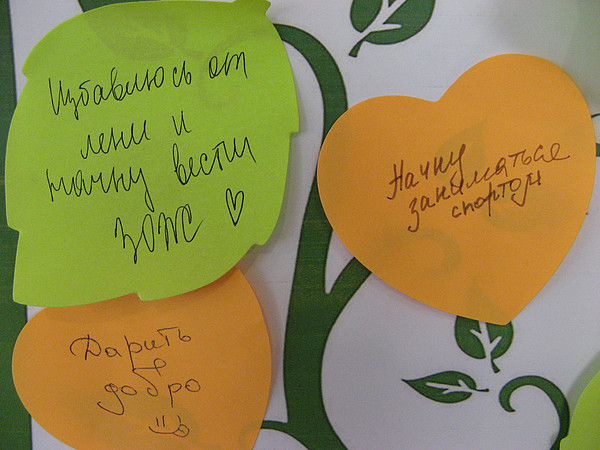 Избавлюсь от
лени и
начну вести
ЗОЖ ♡
Начну
заниматься
спортом
Дарить
добро